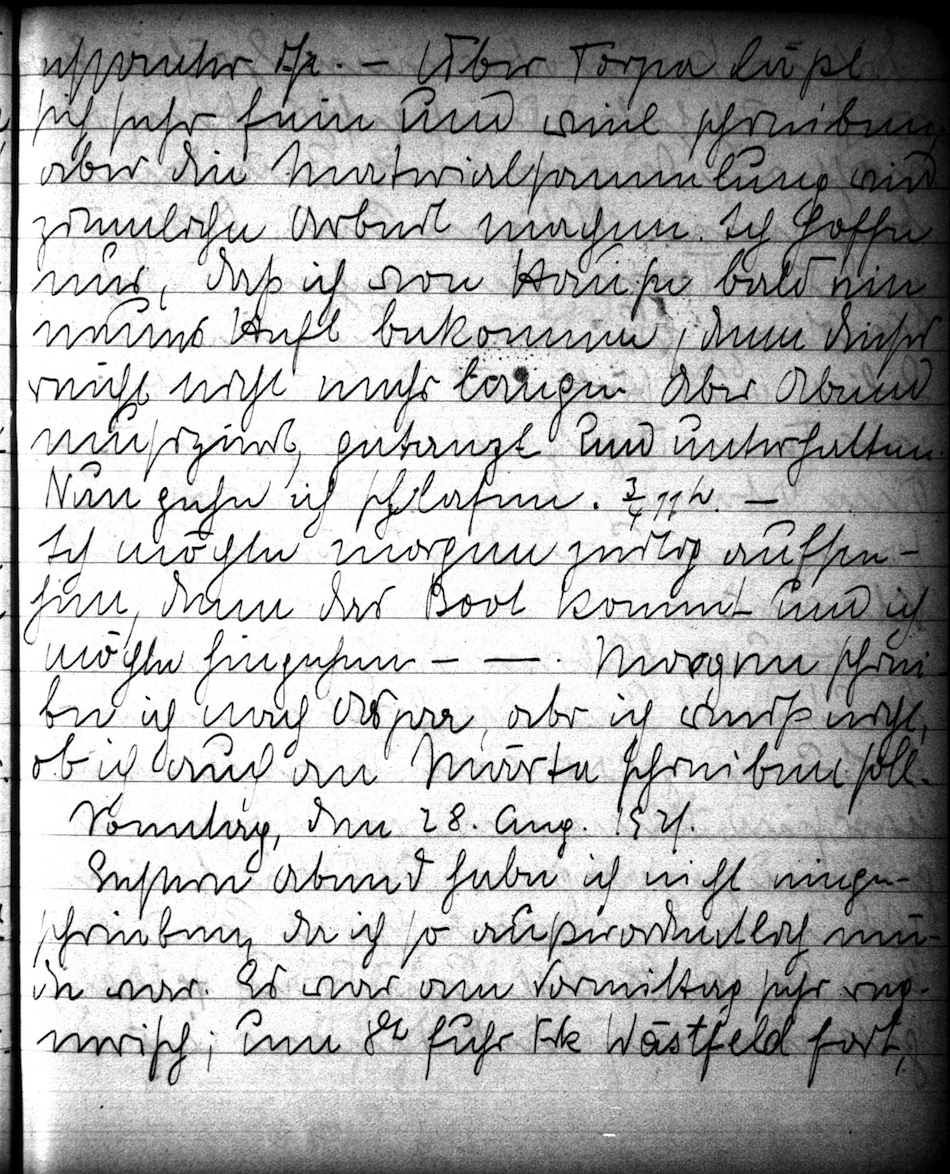 Über Torpa läßt
sich sehr fein und viel schreiben,
aber die Materialsammlung wird
ziemliche Arbeit machen. Ich hoffe
nur, daß ich von Hause bald ein
neues Heft bekomme, denn dieses
reicht nicht mehr lange. Aber Abend
musiziert, getanzt und unterhalten.
Nun gehe ich schlafen. ¾ 11 h. —
Ich möchte morgen zeitig aufste-
hen, denn das Boot kommt und ich
möchte hingehen — —. Morgen schrei
be ich nach aber ich weiß nicht,
ob ich auch an Märta schreiben soll.
Sonntag, den 28. Aug. 1921.
Gestern Abend habe ich nicht einge-
schrieben, da ich so außerordentlich mü-
de war. Es war am Vormittag sehr reg-
nerisch; um 8h fuhr Frk Wästfeld fort,